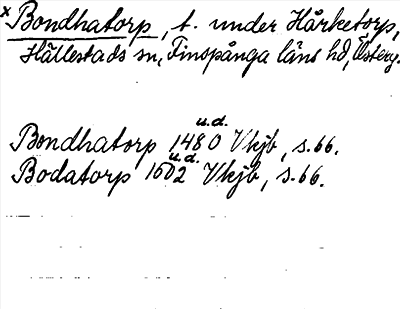 x Bondhatorp, t. under Hårketorp,
Hällestads sn, Finspånga läns hd, Österg.
u.d.
Bondhatorp 1480 Vkjb, s. 66.
u.d.
Bodatorp 1502 Vkjb, s. 66.